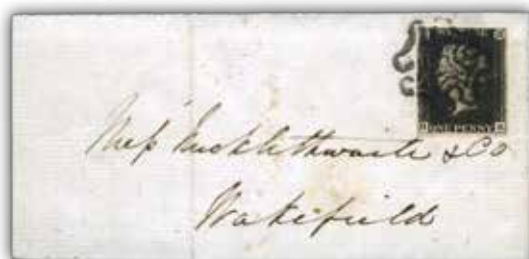 ONE PENNY
Mess Micklethwaite & Co
Wakefield